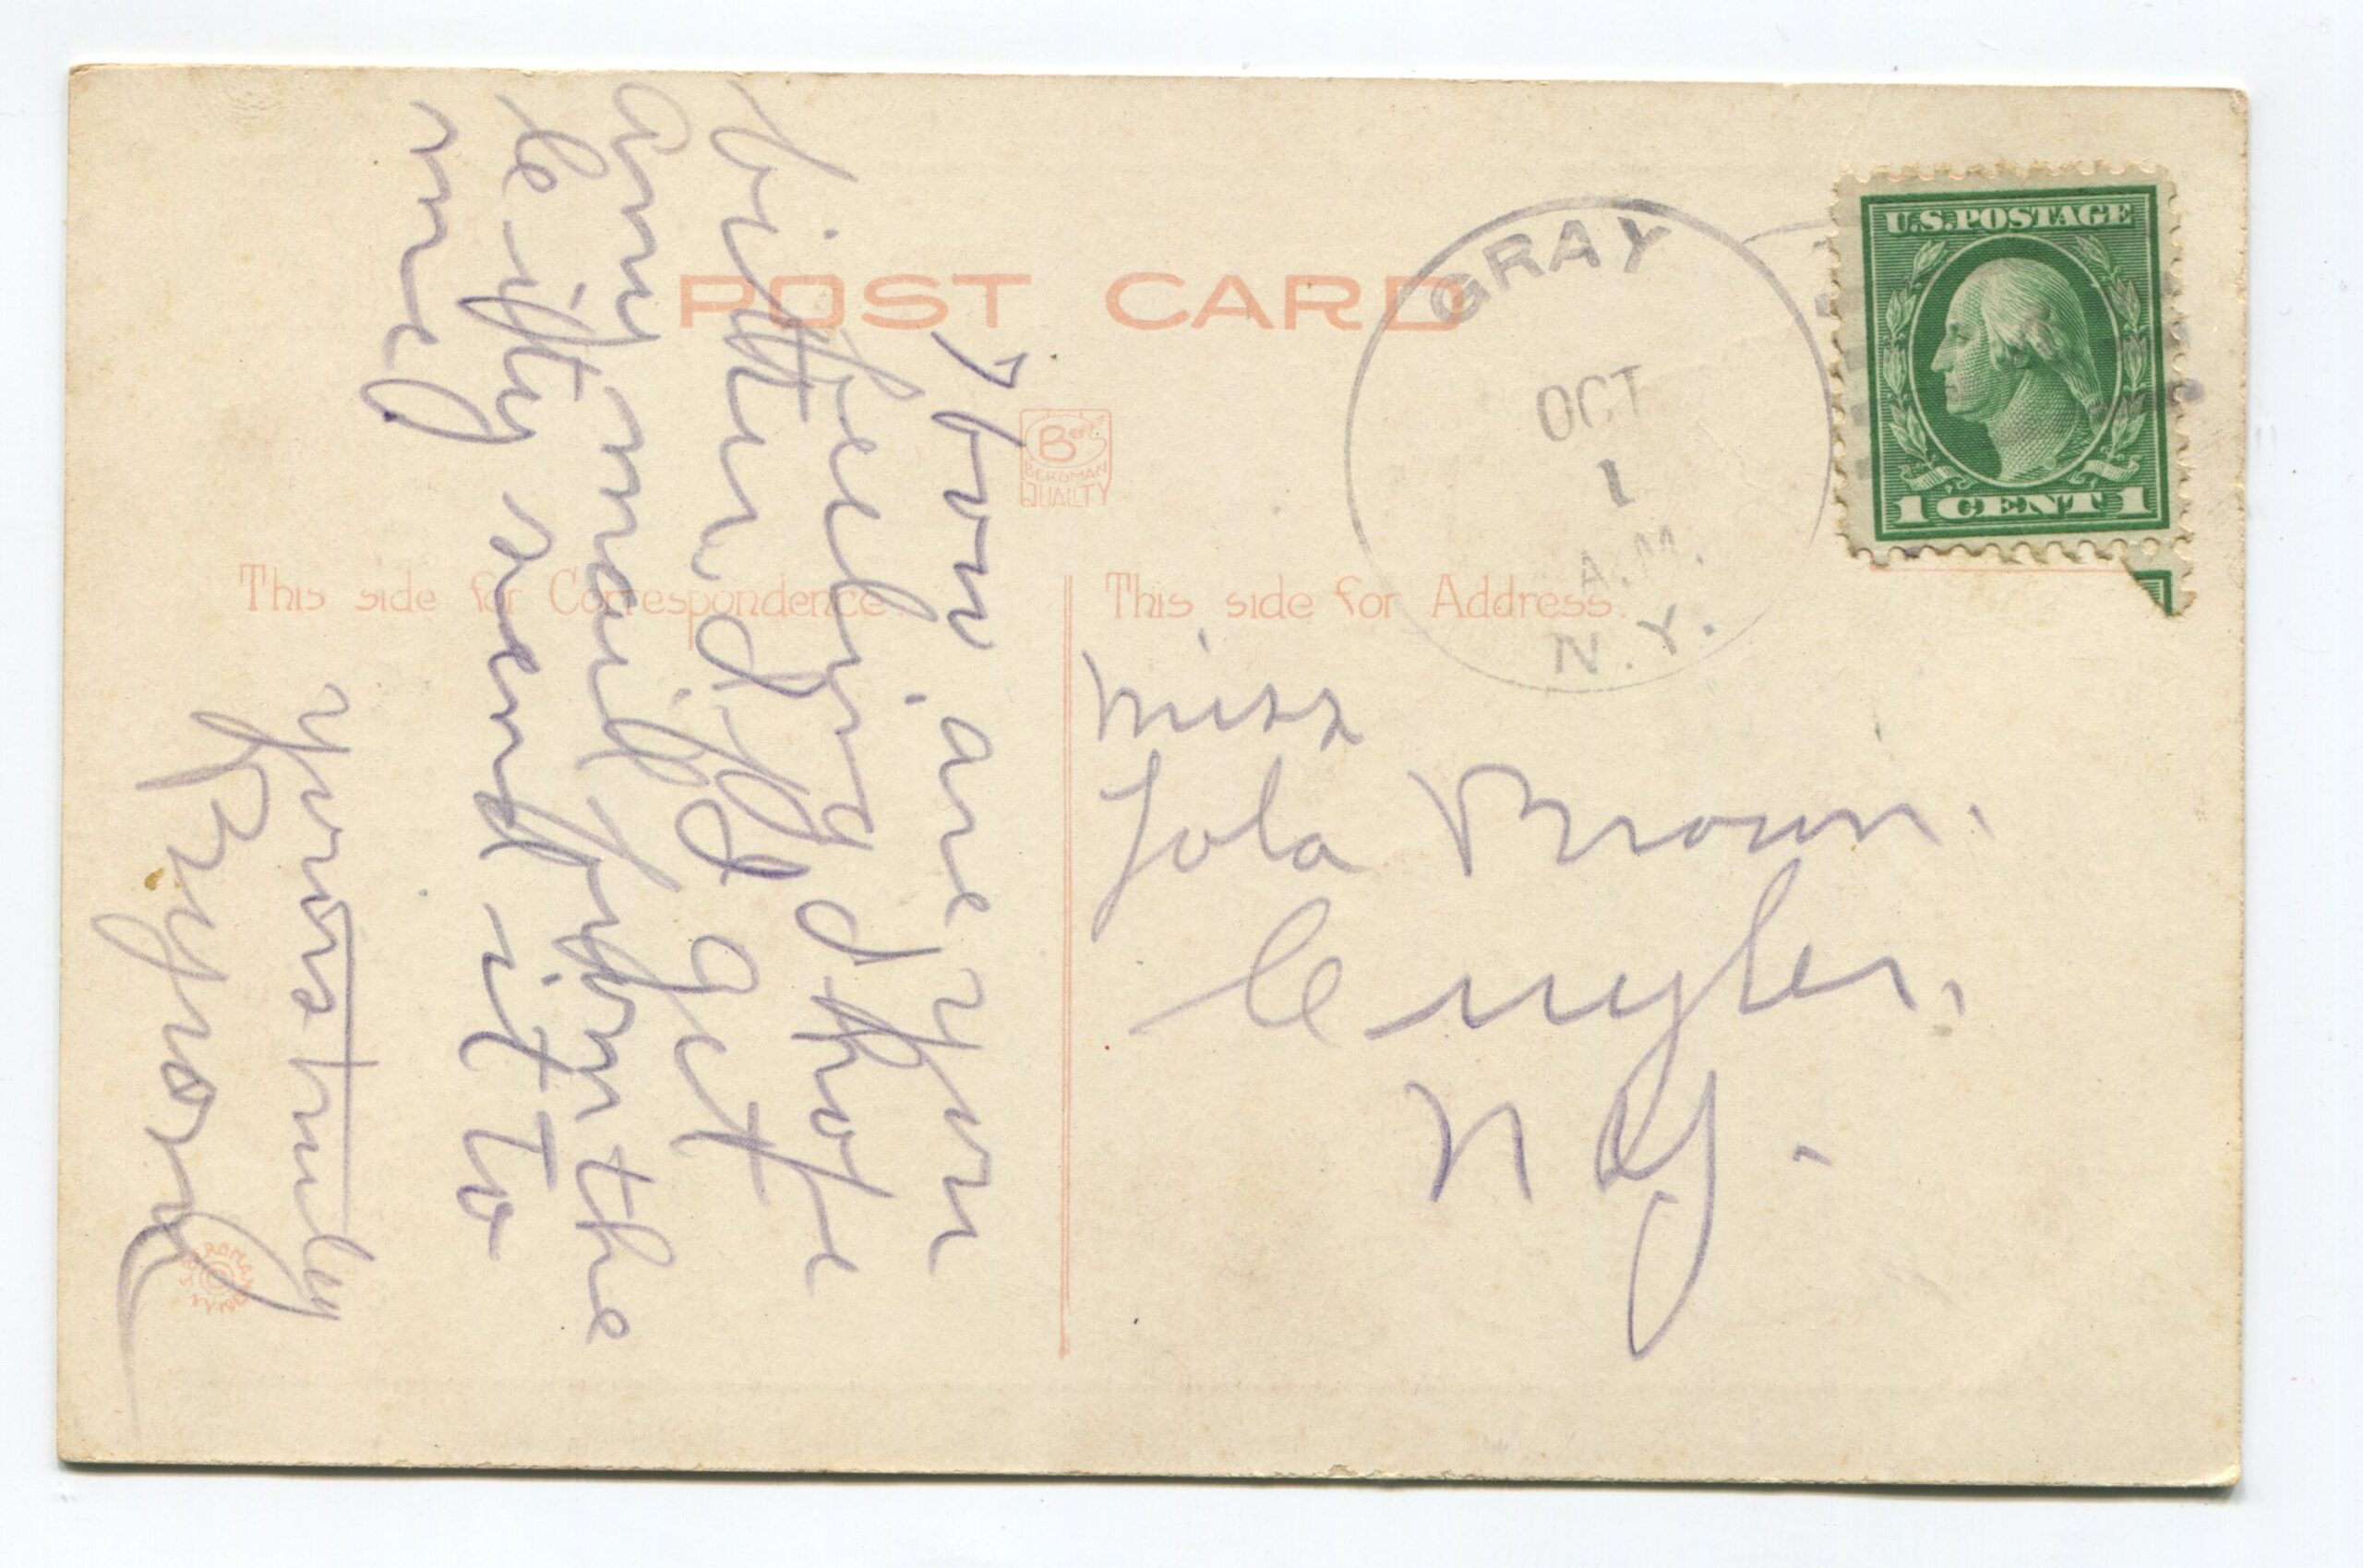 POST CARD
GRAY
OCT
1
A.M.
N.Y.
U.S. POSTAGE
1 CENT 1
BERGMAN
QUALITY
This side for Correspondence
This side for Address.
How are you
feeling I hope
bitter. if I get
any mail from the
City send it to
me
yours truly
Miss
Iola Brown.
Cuyler.
N Y.